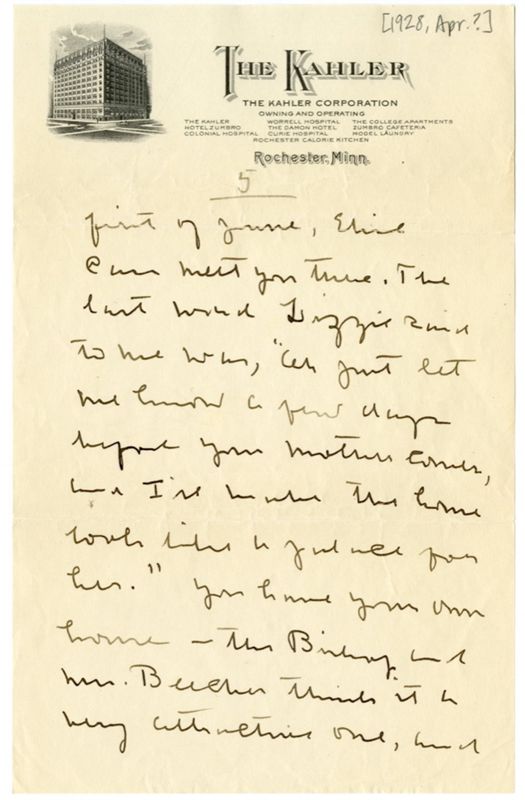 [1928, Apr.?]
THE KAHLER
THE KAHLER CORPORATION
OWNING AND OPERATING
THE KAHLER WORRELL HOSPITAL THE COLLEGE APARTMENTS
HOTEL ZUMBRO THE DAMON HOTEL ZUMBRO CAFETERIA
COLONIAL HOSPITAL CURIE HOSPITAL MODEL LAUNDRY
ROCHESTER CALORIE KITCHEN
Rochester, Minn.
5
first of June, Elsie
can meet you there. The
last word Lizzie said
to me was, "Oh just let
me know a few days
before your mother comes,
and I'll make the home
look like a palace for
her." You have your own
home – the Bishop and
Mrs. Beecher thinks it a
very attractive one, and